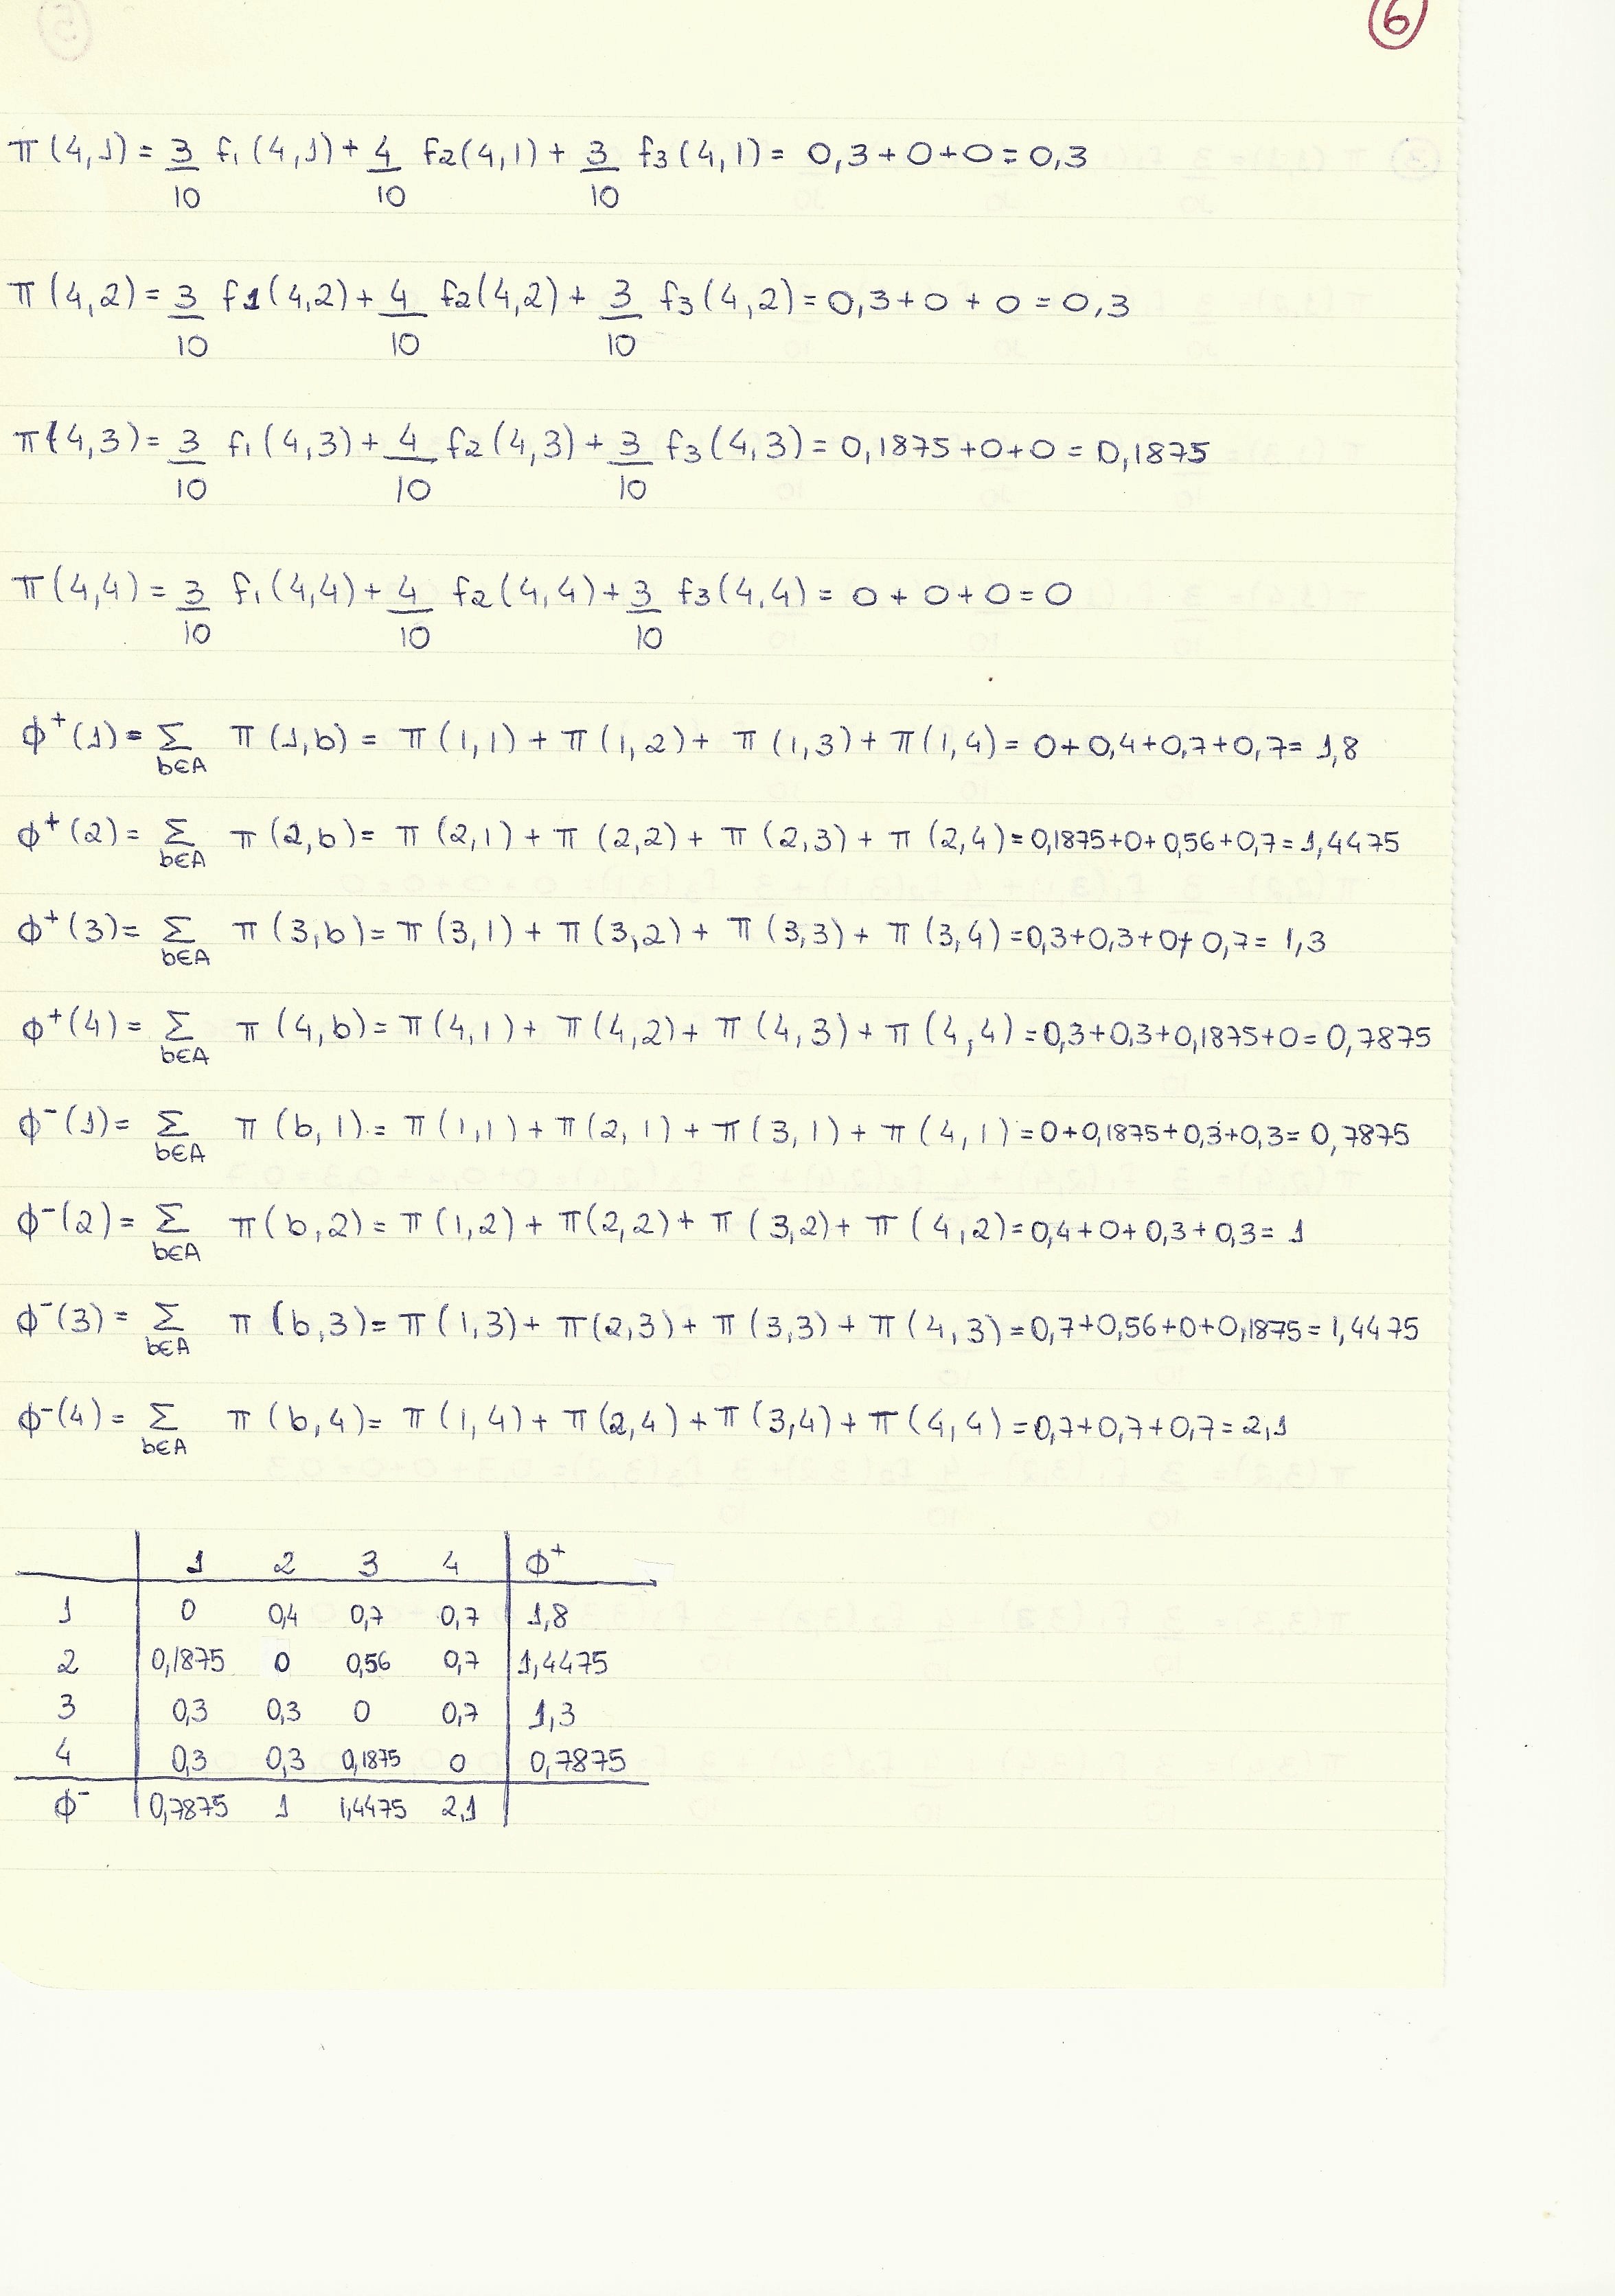 6
π(4,1) = 3/10 f1(4,1) + 4/10 f2(4,1) + 3/10 f3(4,1) = 0,3+0+0 = 0,3
π(4,2) = 3/10 f1(4,2) + 4/10 f2(4,2) + 3/10 f3(4,2) = 0,3+0+0 = 0,3
π(4,3) = 3/10 f1(4,3) + 4/10 f2(4,3) + 3/10 f3(4,3) = 0,1875+0+0 = 0,1875
π(4,4) = 3/10 f1(4,4) + 4/10 f2(4,4) + 3/10 f3(4,4) = 0+0+0 = 0
ϕ⁺(1) = Σ b∈A π(1,b) = π(1,1) + π(1,2) + π(1,3) + π(1,4) = 0+0,4+0,7+0,7 = 1,8
ϕ⁺(2) = Σ b∈A π(2,b) = π(2,1) + π(2,2) + π(2,3) + π(2,4) = 0,1875+0+0,56+0,7 = 1,4475
ϕ⁺(3) = Σ b∈A π(3,b) = π(3,1) + π(3,2) + π(3,3) + π(3,4) = 0,3+0,3+0+0,7 = 1,3
ϕ⁺(4) = Σ b∈A π(4,b) = π(4,1) + π(4,2) + π(4,3) + π(4,4) = 0,3+0,3+0,1875+0 = 0,7875
ϕ⁻(1) = Σ b∈A π(b,1) = π(1,1) + π(2,1) + π(3,1) + π(4,1) = 0+0,1875+0,3+0,3 = 0,7875
ϕ⁻(2) = Σ b∈A π(b,2) = π(1,2) + π(2,2) + π(3,2) + π(4,2) = 0,4+0+0,3+0,3 = 1
ϕ⁻(3) = Σ b∈A π(b,3) = π(1,3) + π(2,3) + π(3,3) + π(4,3) = 0,7+0,56+0+0,1875 = 1,4475
ϕ⁻(4) = Σ b∈A π(b,4) = π(1,4) + π(2,4) + π(3,4) + π(4,4) = 0,7+0,7+0,7 = 2,1
1 2 3 4 ϕ⁺
1 0 0,4 0,7 0,7 1,8
2 0,1875 0 0,56 0,7 1,4475
3 0,3 0,3 0 0,7 1,3
4 0,3 0,3 0,1875 0 0,7875
ϕ⁻ 0,7875 1 1,4475 2,1